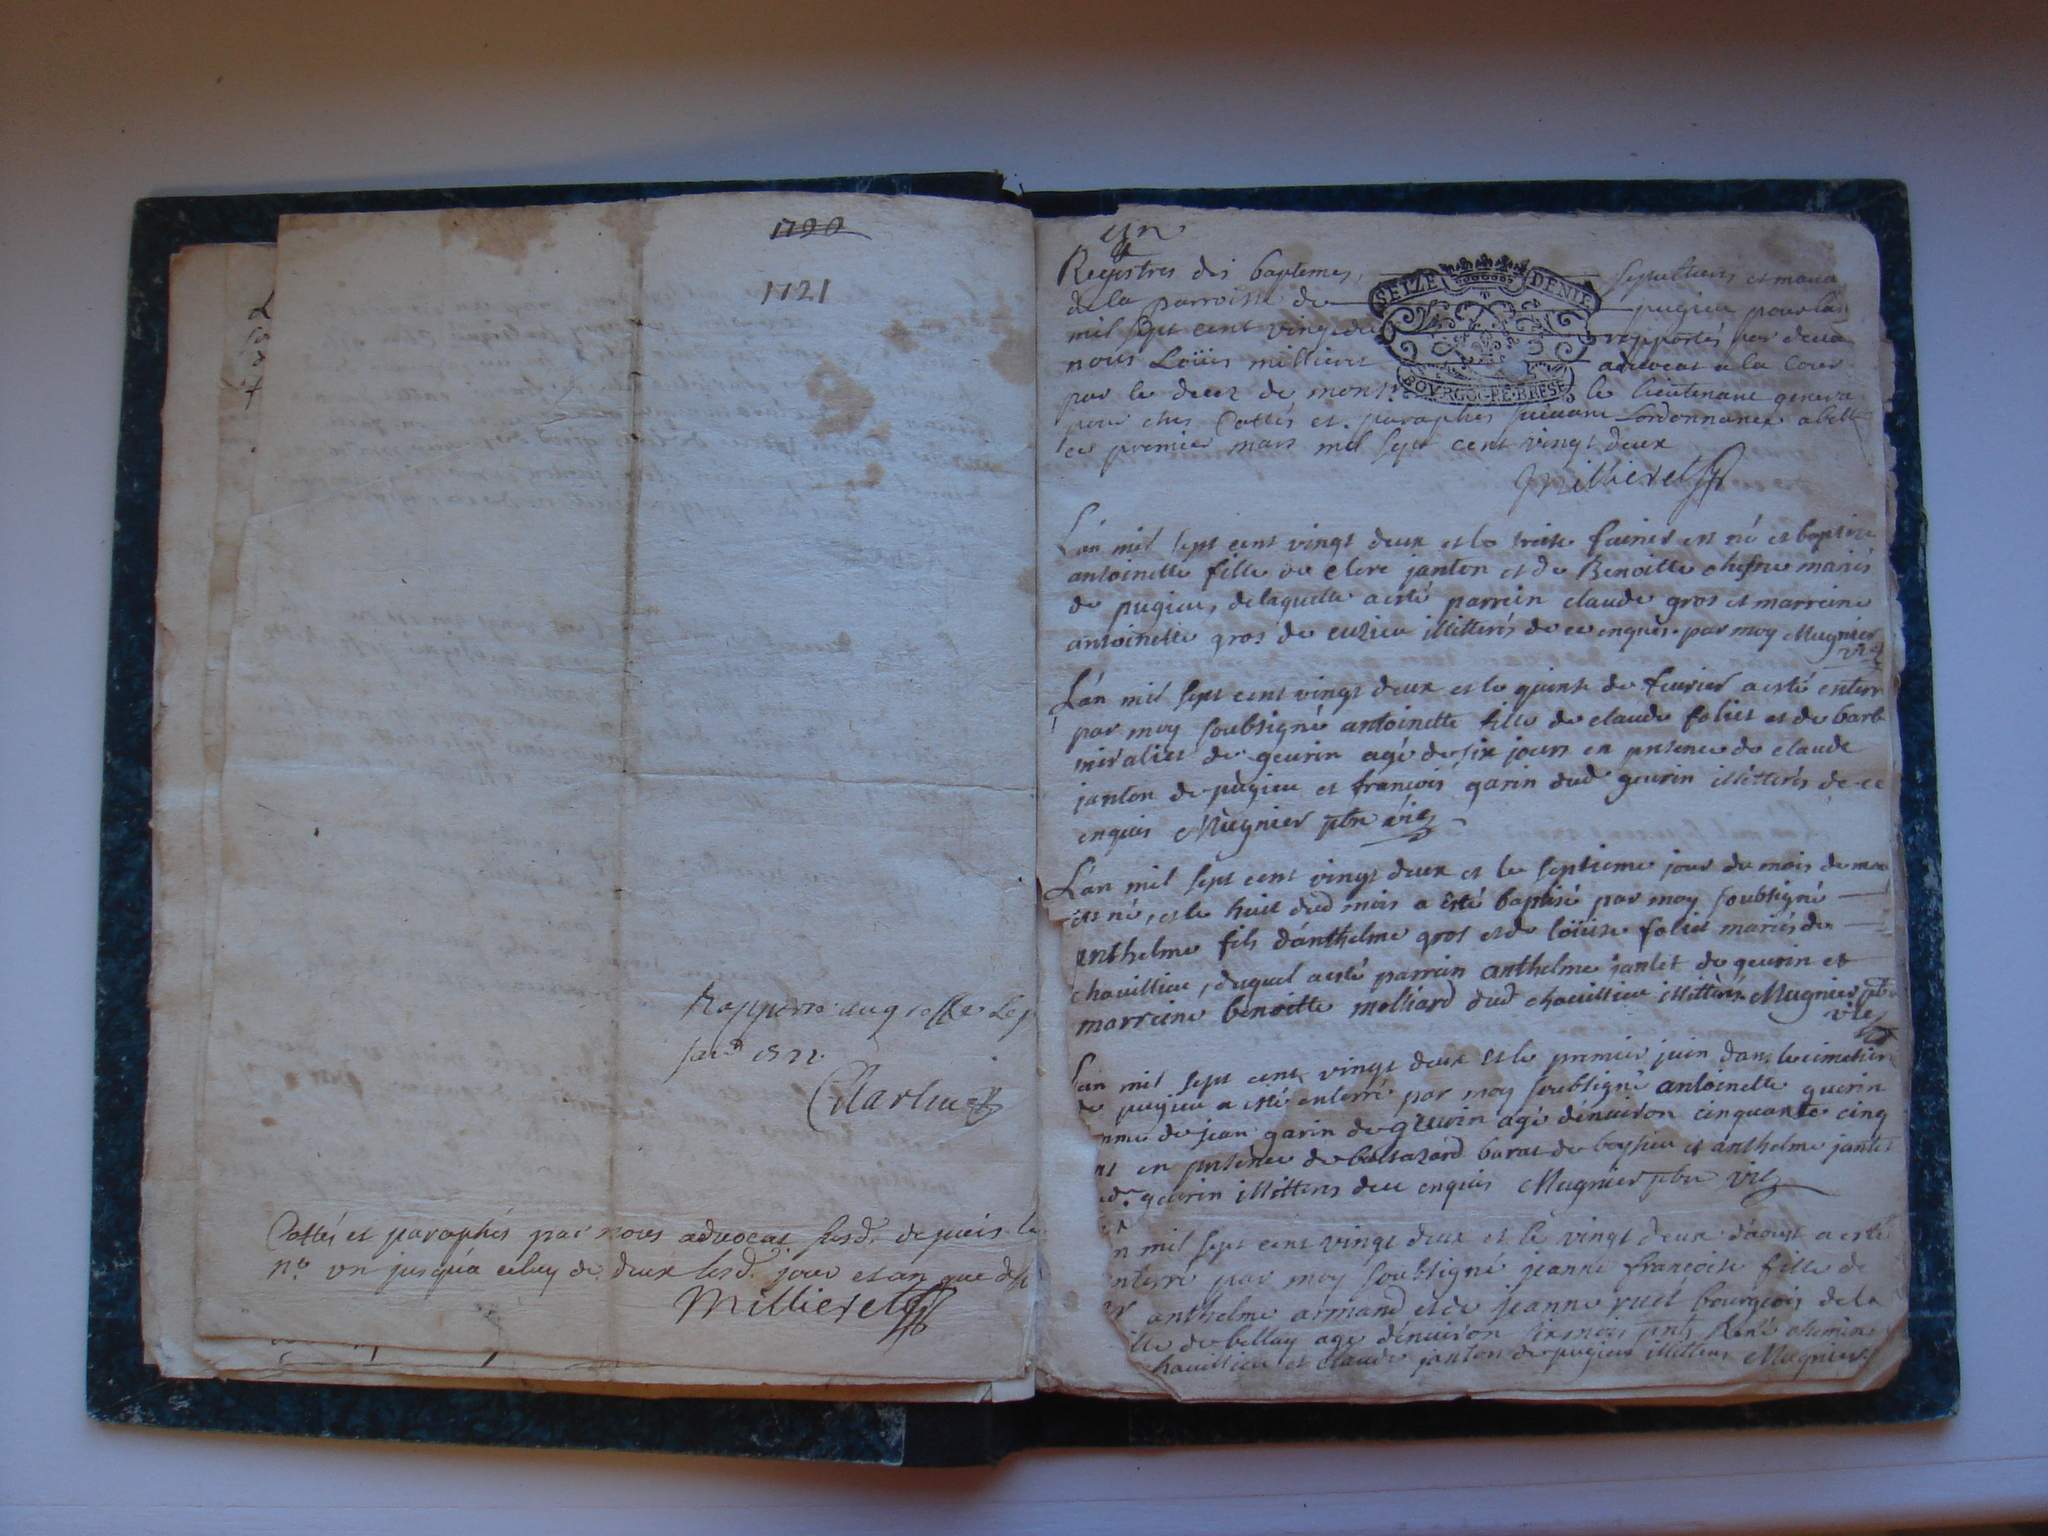 1720
1721
Rapporté au greffe le
1722
Cottés et paraphés par nous advocat susd. depuis le
n.o un jusqúa celuy de deux lesd. jour et an que dess
Millieret
un
Registres des baptemes, sepultures et maria
de la parroisse de pugieu pour lan
mil sept cent vingt deux rapportés par deva
nous Loüis millieret advocat a la cour
SEIZE DENIE
BOURGOG·ET·BRESSE
par le decez de mons.r le lieutenant genera
pour estre Cottés et paraphés suivant Lordonnance a bell
ce premier mars mil sept cent vingt deux
Millieret
Lán mil sept cent vingt deux et le treise est né et baptise
antoinette fille de janton et de Benoitte mariés
de pugieu, de laquelle a esté parrein claude gros et marreine
antoinette gros de cuzieu illitterés de ce enquis. par moy Mugnier
vic
Lán mil sept cent vingt deux et le quinse de feurier a esté enterr
par moy soubsigné antoinette fille de claude foliet et de barb
miraliet de geurin agé de six jours en presence de claude
janton de pugieu et francois garin dud geurin illitterés de ce
enquis Mugnier pbr vic
Lán mil sept cent vingt deux et le septieme jour du mois de ma
est né, et le huit dud mois a esté baptisé par moy soubsigné
anthelme fils dánthelme gros et de loüise foliet mariés de
chavillieu, duquel a esté parrain anthelme jantet de geurin et
marreine benoitte molliard dud chavillieu illitterés Mugnier pbr
vic
Lan mil sept cent vingt deux et le premier juin dans le cimetier
de pugieu a esté enterré par moy soubsigné antoinette guerin
mme de jean garin de geurin agé dénuiron cinquante cinq
ns en presence de baltazard barat de boysieu et anthelme jantet
geurin illitterés de ce enquis Mugnier pbr vic
n mil sept cent vingt deux et le vingt deux d'aoust a esté
nterré par moy soubsigné jeanne françoise fille de
anthelme armand et de jeanne bourgeois de la
lle de bellay agé dénuiron six mois pnts René
havillieu et claude janton de pugieu illitterés Mugnier